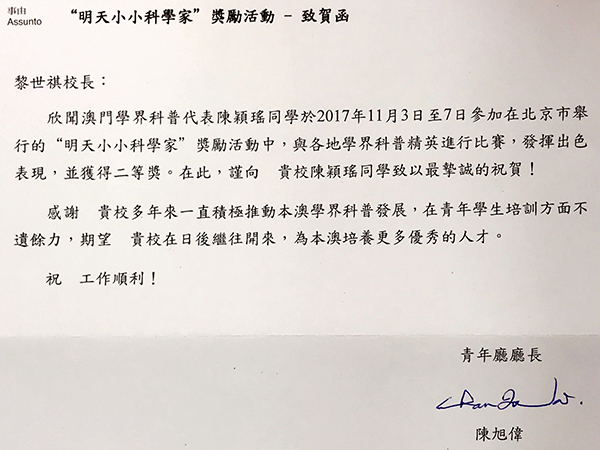 事由
Assunto
“明天小小科學家”獎勵活動 - 致賀函
黎世祺校長：
欣聞澳門學界科普代表陳穎瑤同學於2017年11月3日至7日參加在北京市舉
行的“明天小小科學家”獎勵活動中，與各地學界科普精英進行比賽，發揮出色
表現，並獲得二等獎。在此，謹向　貴校陳穎瑤同學致以最摯誠的祝賀！
感謝　貴校多年來一直積極推動本澳學界科普發展，在青年學生培訓方面不
遺餘力，期望　貴校在日後繼往開來，為本澳培養更多優秀的人才。
祝　工作順利！
青年廳廳長
陳旭偉